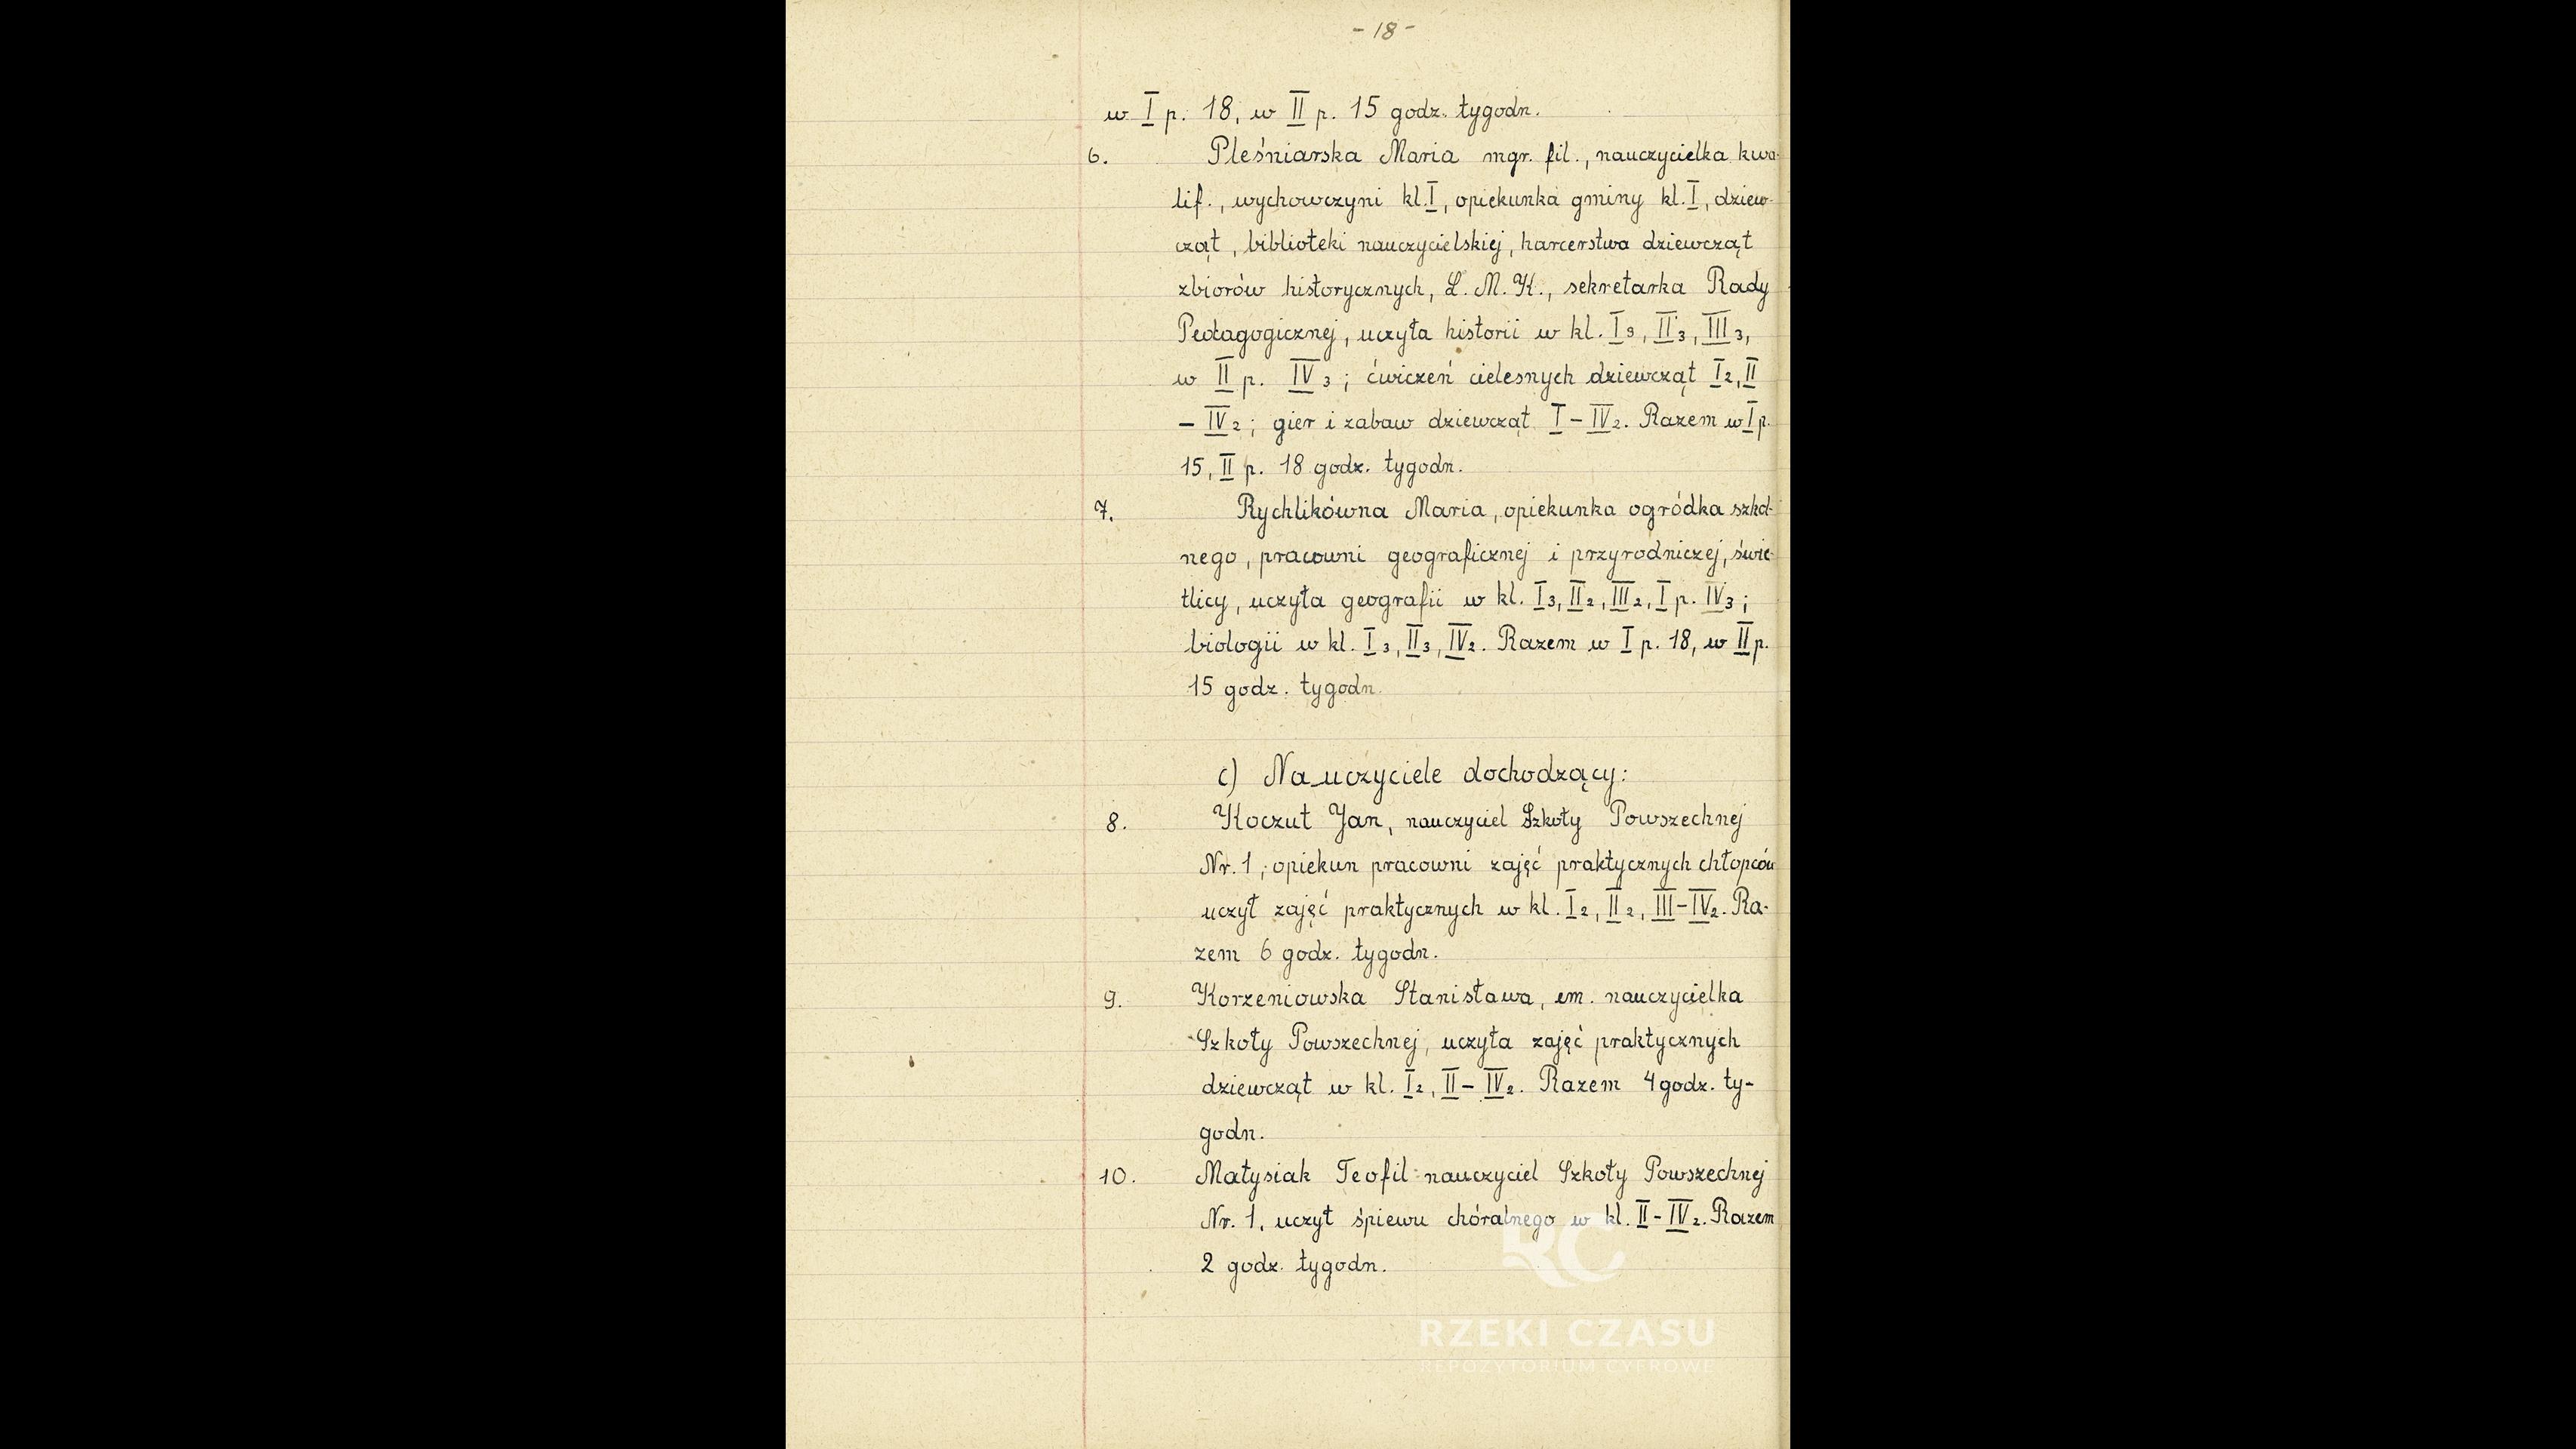 - 18 -
w I p. 18, w II p. 15 godz. tygodn.
6. Pleśniarska Maria mgr. fil., nauczycielka kwa-
lif., wychowczyni kl. I, opiekunka gminy kl. I, dziew-
cząt, biblioteki nauczycielskiej, harcerstwa dziewcząt
zbiorów historycznych, L. M. K., sekretarka Rady
Pedagogicznej, uczyła historii w kl. I3, II3, III3,
w II p. IV3; ćwiczeń cielesnych dziewcząt I2, II
- IV2; gier i zabaw dziewcząt I - IV2. Razem w I p.
15, II p. 18 godz. tygodn.
7. Rychlikówna Maria, opiekunka ogródka szkol-
nego, pracowni geograficznej i przyrodniczej, świe-
tlicy, uczyła geografii w kl. I3, II2, III2, I p. IV3;
biologii w kl. I3, II3, IV2. Razem w I p. 18, w II p.
15 godz. tygodn.
c) Nauczyciele dochodzący:
8. Koczut Jan, nauczyciel Szkoły Powszechnej
Nr. 1, opiekun pracowni zajęć praktycznych chłopców
uczył zajęć praktycznych w kl. I2, II2, III-IV2. Ra-
zem 6 godz. tygodn.
9. Korzeniowska Stanisława, em. nauczycielka
Szkoły Powszechnej, uczyła zajęć praktycznych
dziewcząt w kl. I2, II - IV2. Razem 4 godz. ty-
godn.
10. Matysiak Teofil nauczyciel Szkoły Powszechnej
Nr. 1, uczył śpiewu chóralnego w kl. II - IV2. Razem
2 godz. tygodn.
RC
RZEKI CZASU
REPOZYTORIUM CYFROWE